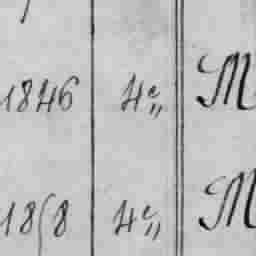 1846 4e„ M
1858 4e„ M